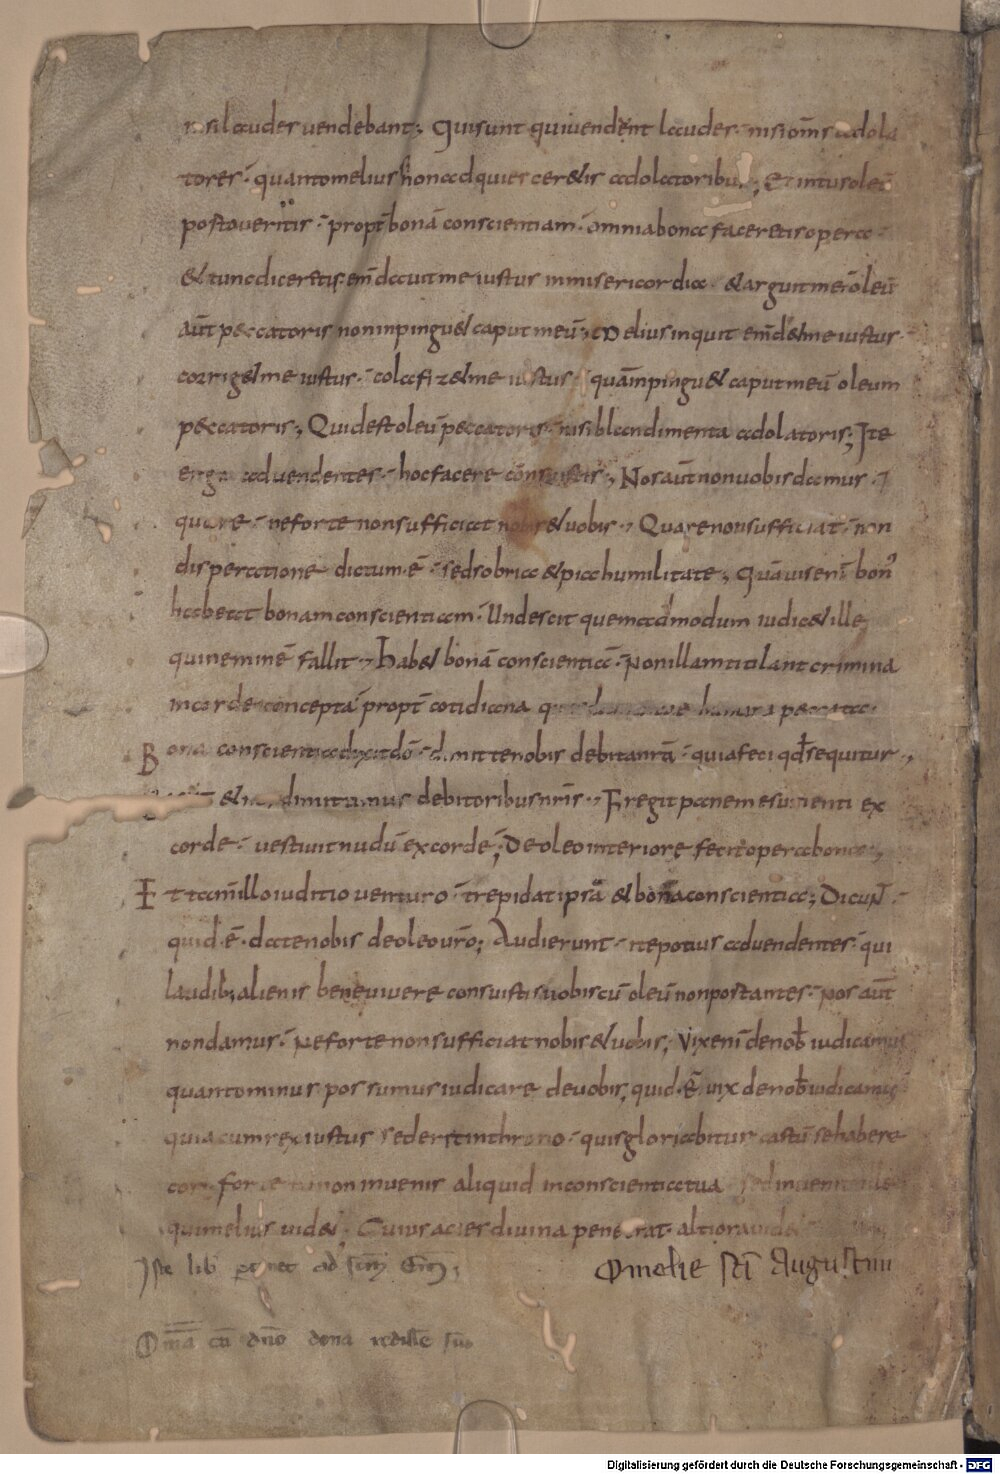 laudes uendebant; Qui sunt qui uendent laudes nisi om̄s adola
tores · quanto melius non adquiescer&is adolatoribus; & intus oleū
portaueritis · propt̄ bonā conscientiam · omnia bona faceretis opera ·
& tunc diceretis · em̄dauit me iustus in misericordia · & arguit me · oleū
aūt peccatoris non inpingu& caput meū; Melius inquit em̄d& me iustus ·
corrig& me iustus · colafiz& me iustus · quām pingu& caput meū oleum
peccatoris; Quid est oleū peccatoris · nisi blandimenta adolatoris; Ite
ergo ad uendentes · hoc facere consuistis; Nos aūt non uobis damus ·
quare · ne forte non sufficiat nobis & uobis · Quare non sufficiat · non
disperatione dictum ·ē· sed sobria & pia humilitate; Quāuis eni bon'
habeat bonam conscientiam · Unde scit quemadmodum iudic& ille
qui neminē fallit · Hab& bonā conscientiā · Non illam titilant crimina
in corde concepta · propt̄ cotidiana humana peccata ·
Bona conscientia dixit dō · dimitte nobis debita nr̄a · quia feci qd̄ sequitur ·
& dimittamus debitoribus nr̄is · Fregit panem esurienti ex
corde · uestiuit nudū ex corde; De oleo interiore fecit opera bona;
Et tam̄ illo iuditio uenturo · trepidat ipsā & bona conscientia; Dicunt ·
quid ·ē· date nobis de oleo ur̄o; Audierunt · ite potius ad uendentes · qui
laudib; alienis bene uiuere consuistis uobiscū oleū non portantes · Nos aūt
non damus · Ne forte non sufficiat nobis & uobis; Vix eni de nob̄ iudicamus
quanto minus possumus iudicare de uobis, quid ·ē· uix de nob̄ iudicamus
quia cum rex iustus sederit in throno · quis gloriabitur castū se habere
cor · forte non inuenis aliquid in conscientia tua sed inuenit ille
qui melius uid& · Cuius acies diuina penetrat · altiora uid&
Iste lib̄ ad
Omelie scī Augustini
cū dn̄o dona